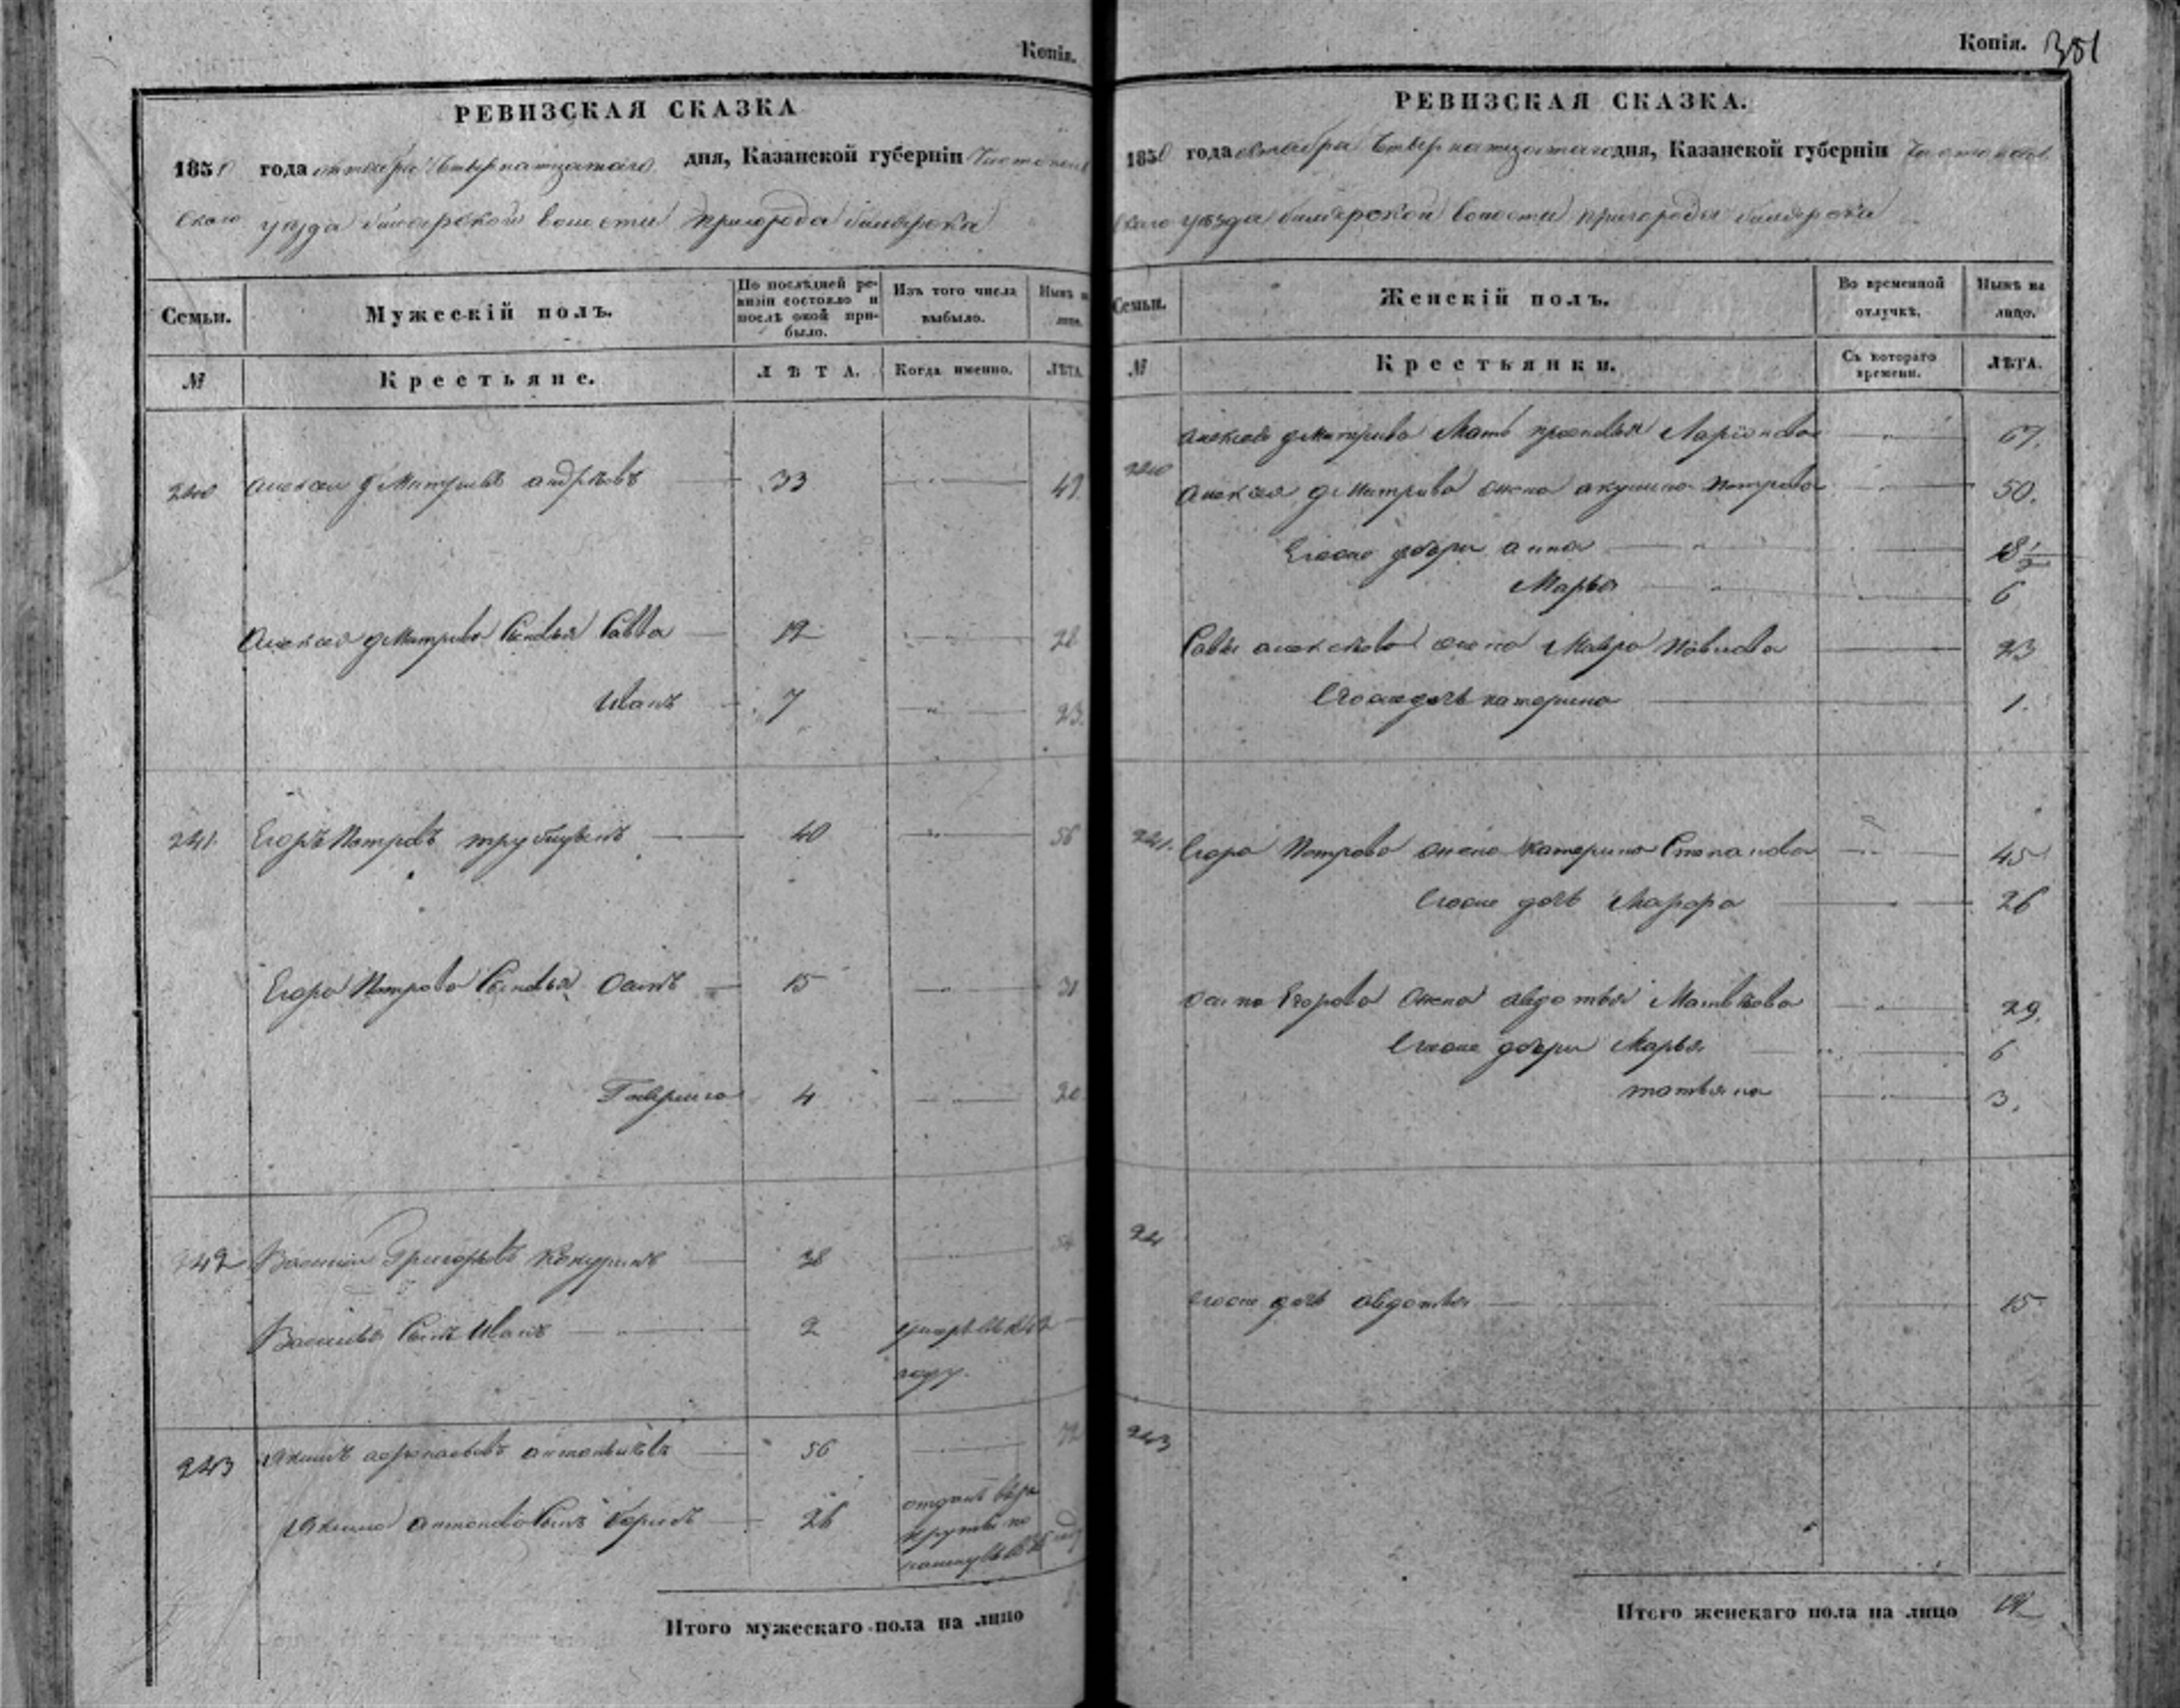 Копія.
РЕВИЗСКАЯ СКАЗКА
1850 года октября дня, Казанской губерніи Чистополь
скаго уѣзда билярской волости пригорода билярска
Семьи. Мужескій полъ. По послѣдней ревизіи состояло и послѣ оной прибыло. Изъ того числа выбыло. Нынѣ на лицо.
№ Крестьяне. ЛѢТА. Когда именно. ЛѢТА.
240 Алексей дмитриевъ андрѣевъ 33 49.
Алексея дмитриева Сыновья Савва 12 28
Иванъ 7 23.
241. Егоръ Петровъ 40 56
Егора Петрова Сыновья Осипъ 15 31
Гаврила 4 20
242 Василий Григорьевъ 38 54
Василья Сынъ Иванъ 2
году.
243 56 72
Сынъ 26
Итого мужескаго пола на лицо
Копія. 381
РЕВИЗСКАЯ СКАЗКА.
1850 года октября дня, Казанской губерніи Чистополь
скаго уѣзда билярской волости пригорода билярска
Семьи. Женскій полъ. Во временной отлучкѣ. Нынѣ на лицо.
№ Крестьянки. Съ котораго времени. ЛѢТА.
Алексея дмитриева Мать прасковья Ларионова 67.
240 Алексея дмитрива жена акулина Петрова 50.
Егоже дочери анна 18 1/2
Марья 6
Савы алексѣева жена Мавра Павлова 23
Егоже дочь катерина 1.
241. Егора Петрова жена Катерина Степанова 45
Егоже дочь 26
Осипа Егорова жена авдотья Матвѣева 29.
Егоже дочери Марья 6
татьяна 3.
24
Егоже дочь авдотья 15
243
Итого женскаго пола на лицо 12